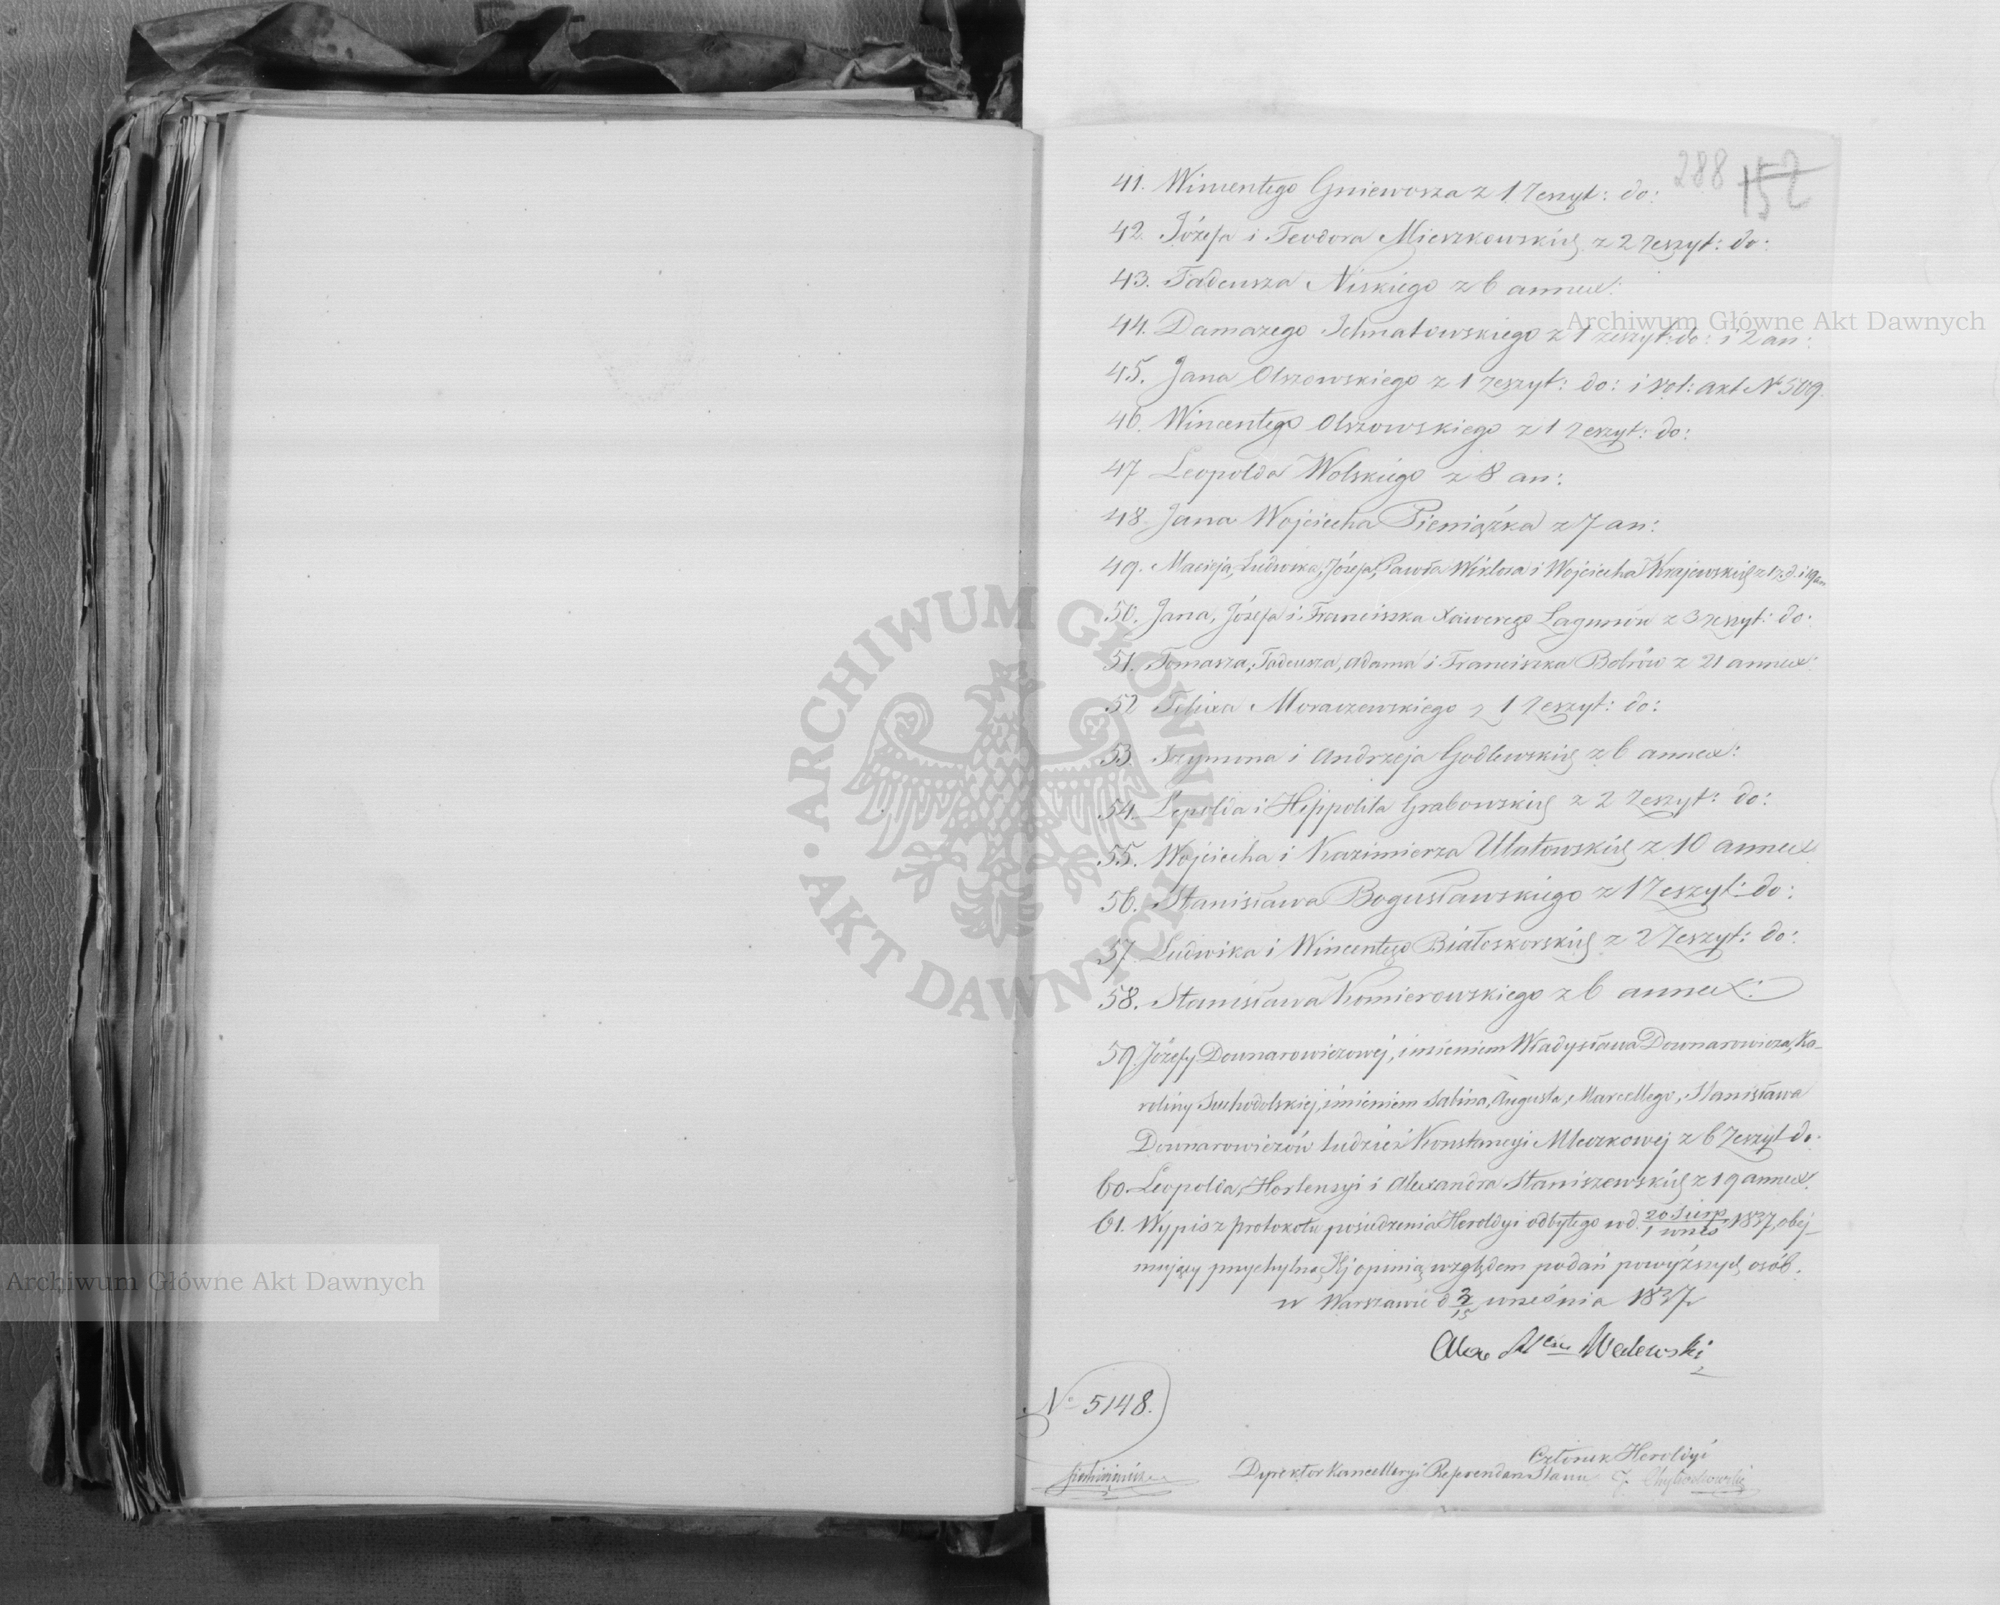 288 152
41. Wincentego Gniewosza z 1 Zeszyt: do:
42. Józefa i Teodora Mieszkowskich z 2 zeszyt: do:
43. Tadeusza Niskiego z 6 annex:
44. Damazego Jełmatowskiego z 1 zeszyt: do: i 2 an:
45. Jana Olszowskiego z 1 zeszyt: do: i vol: akt N 509.
46. Wincentego Olszowskiego z 1 zeszyt: do:
47 Leopolda Wolskiego z 8 an:
48. Jana Wojciecha Pieniążka z 7 an:
49. Macieja, Ludwika, Józefa, Pawła Wiktora i Wojciecha Krajewskich z 1 z. d. i 19 an
50. Jana, Józefa i Franciszka Xawerego Lagunów z 3 zeszyt: do:
51. Tomasza, Tadeusza, Adama i Franciszka Bobrów z 21 annex:
52 Felixa Moraczewskiego z 1 Zeszyt: do:
53. Szymona i Andrzeja Godlewskich z 6 annex:
54. Lepolda i Hippolita Grabowskich z 2 Zeszyt: do:
55. Wojciecha i Kazimierza Ułatowskich z 10 annex
56. Stanisława Bogusławskiego z 1 Zeszyt: do:
57. Ludwika i Wincentego Białoskorskich z 2 Zeszyt: do:
58. Stanisława Komierowskiego z 6 annex:
59. Józefy Downarowiczowej, imieniem Władysława Downarowicza, Ka-
roliny Suchodolskiej, imieniem Sabina, Augusta, Marcellego, Stanisława
Downarowiczów tudzież Konstancyi Mleczkowej z 6 Zeszyt do.
60. Leopolda, Hortensyi i Alexandra Staniszewskich z 19 annex.
61. Wypis z protokołu posiedzenia Heroldyi odbytego w d. 20 Sierp / 1 wrześ 1837, obej-
mujący przychylną Jej opinią względem podań powyższych osób.
w Warszawie d 3/15 września 1837
Alex Walewski
N° 5148.
Członek Heroldyi
Dyrektor Kancellaryi Referendarz Stanu J.
Archiwum Główne Akt Dawnych
Archiwum Główne Akt Dawnych
ARCHIWUM GŁÓWNE AKT DAWNYCH